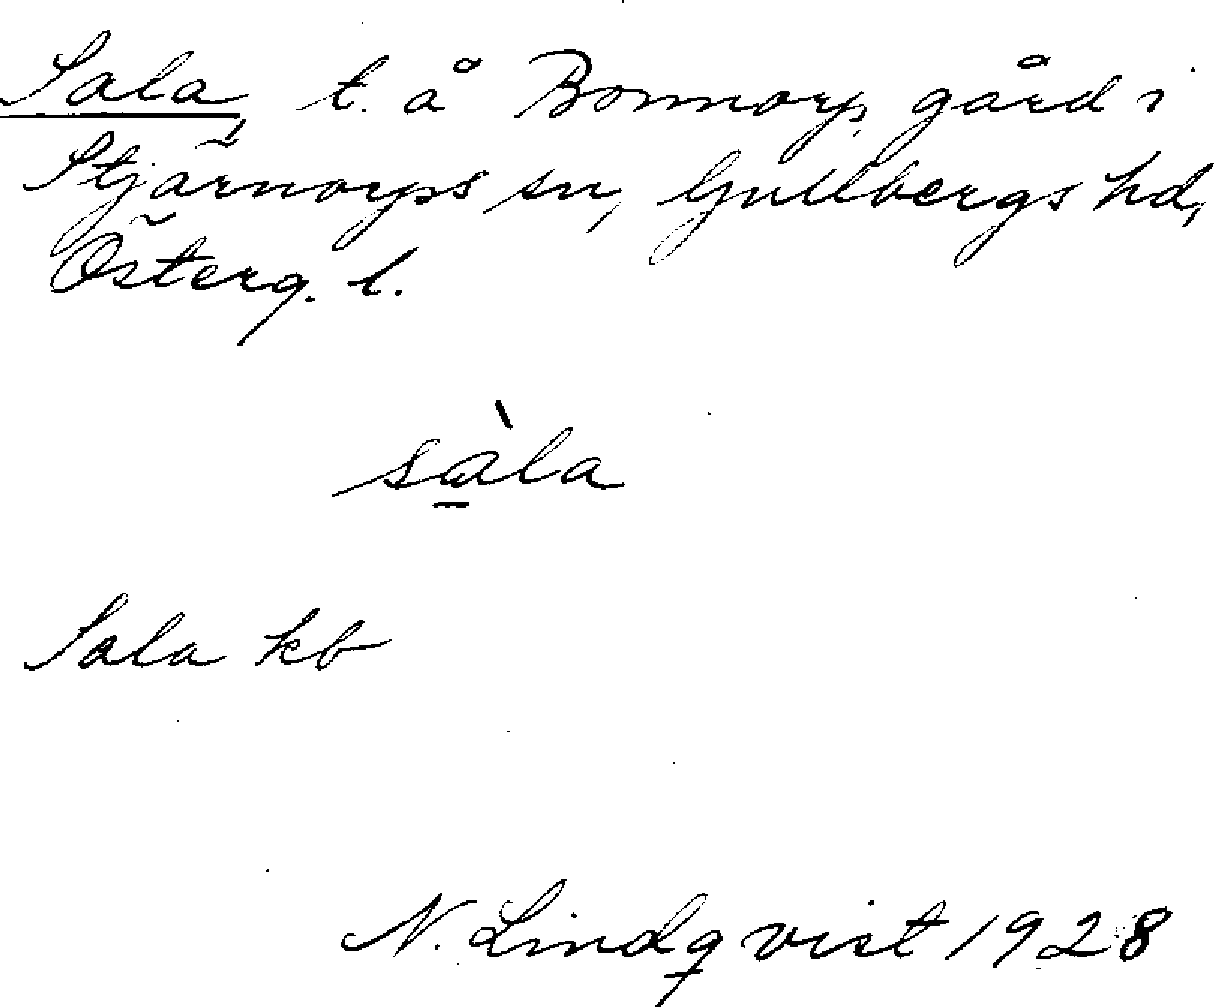 Sala, t. å Bonnorp, gård i
Stjärnorps sn, Gullbergs hd,
Österg. l.
sà̱la
Sala kb
N. Lindqvist 1928